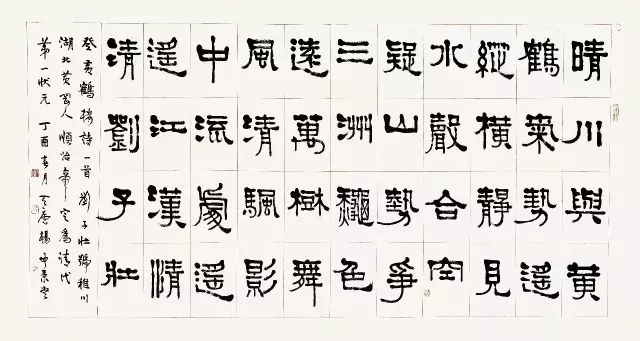 晴川與黃
鶴氣勢遥
縱橫靜見
水聲合空
疑山勢爭
三洲龝色
遠萬樹舞
風清颿影
中流處遥
遥江漢情
清劉子壯
登黃鶴樓詩一首 劉子壯號稚川
湖北黃岡人 順治帝定爲清代
第一狀元 丁酉春月